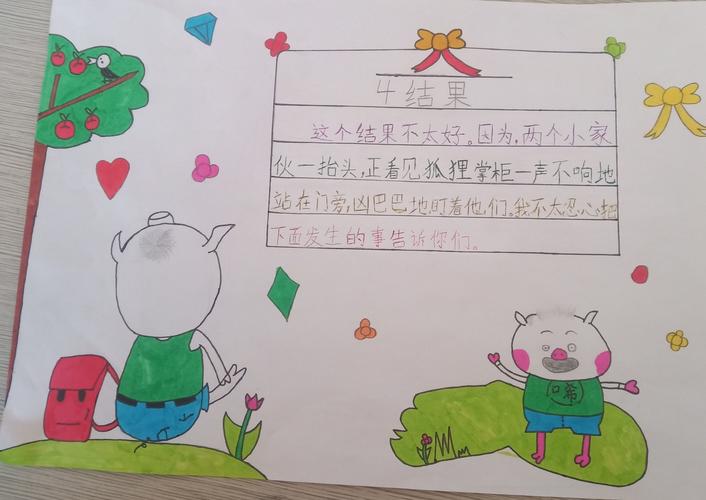 4 结果
这个结果不太好。因为,两个小家
伙一抬头,正看见狐狸掌柜一声不响地
站在门旁,凶巴巴地盯着他们。我不太忍心把
下面发生的事告诉你们。